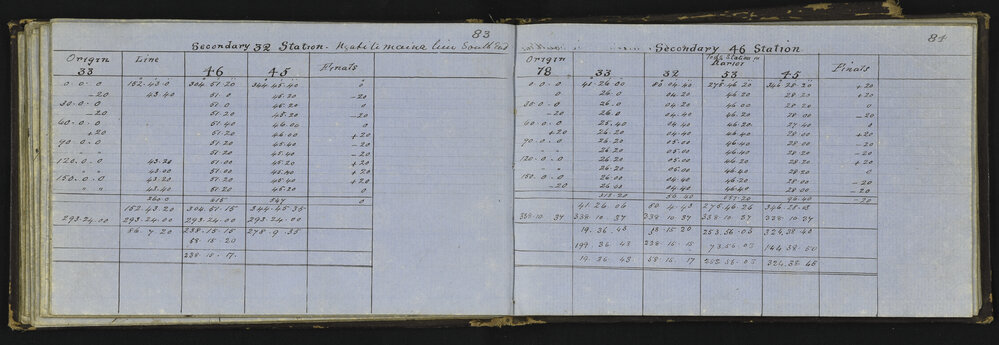 83
Secondary 32 Station - Ngatitimaina line South End
Origin Line Finals
33 46 45
0.0.0 152.43.0 304.51.20 344.45.40 0
-20 43.40 51.0 45.20 -20
30.0.0 51.0 45.20 0
-20 51.20 45.20 -20
60.0.0 51.40 46.00 0
+20 51.20 46.00 +20
90.0.0 51.20 45.40 -20
" " 51.20 45.40 -20
120.0.0 43.20 51.00 45.20 +20
" 43.00 51.00 45.20 +20
150.0.0 43.40 51.20 45.20 0
" " 43.40 51.20 45.20 0
260.0 615 547 0
152.43.20 304.51.15 344.45.35
293.24.00 293.24.00 293.24.00 293.24.00
86.7.20 238.15.15 278.9.35
58.15.20
238.15.17
84
Secondary 46 Station
Origin Trig Station Finals
78 33 32 Karioi 45
53
0.0.0 41.26.00 80.04.40 275.46.20 346.28.20 +20
0 26.0 04.20 46.20 28.20 +20
30.0.0 26.0 04.20 46.20 28.20 0
-20 26.0 04.40 46.20 28.00 -20
60.0.0 25.40 04.40 46.20 27.40 0
+20 26.20 04.40 46.40 28.00 +20
70.0.0 26.20 05.00 46.40 28.00 -20
" " 26.20 05.00 46.40 28.20 -20
120.0.0 26.20 05.00 46.20 28.20 +20
" 26.20 05.00 46.20 28.20 0
150.0.0 26.00 04.40 46.20 28.00 -20
-20 26.00 04.40 46.40 28.00 -20
313.20 56.40 557.20 96.40 -20
41.26.06 80.4.43 275.46.26 346.28.03
338.10.37 338.10.37 338.10.37 338.10.37 338.10.37
19.36.43 58.15.20 253.56.03 324.38.40
199.36.43 238.15.15 73.56.03 144.38.50
19.36.43 58.15.17 253.56.03 324.38.45